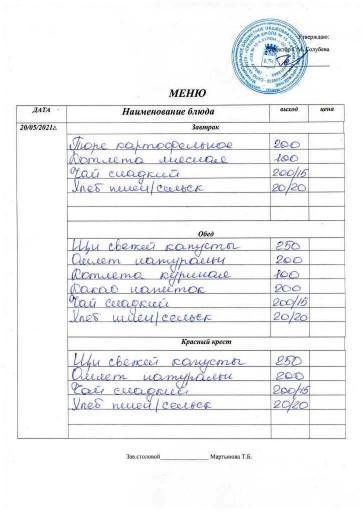 Утверждаю:
Директор Г.М. Голубева
МЕНЮ
ДАТА Наименование блюда выход цена
20/05/2021г. Завтрак
Пюре картофельное 200
Котлета мясная 100
Чай сладкий 200/15
Хлеб пшен/сельск 20/20
Обед
Щи свежей капусты 250
Омлет натуральн 200
Котлета куриная 100
Какао напиток 200
Чай сладкий 200/15
Хлеб пшен/сельск 20/20
Красный крест
Щи свежей капусты 250
Омлет натуральн 200
Чай сладкий 200/15
Хлеб пшен/сельск 20/20
Зав.столовой_______________ Мартынова Т.Б.